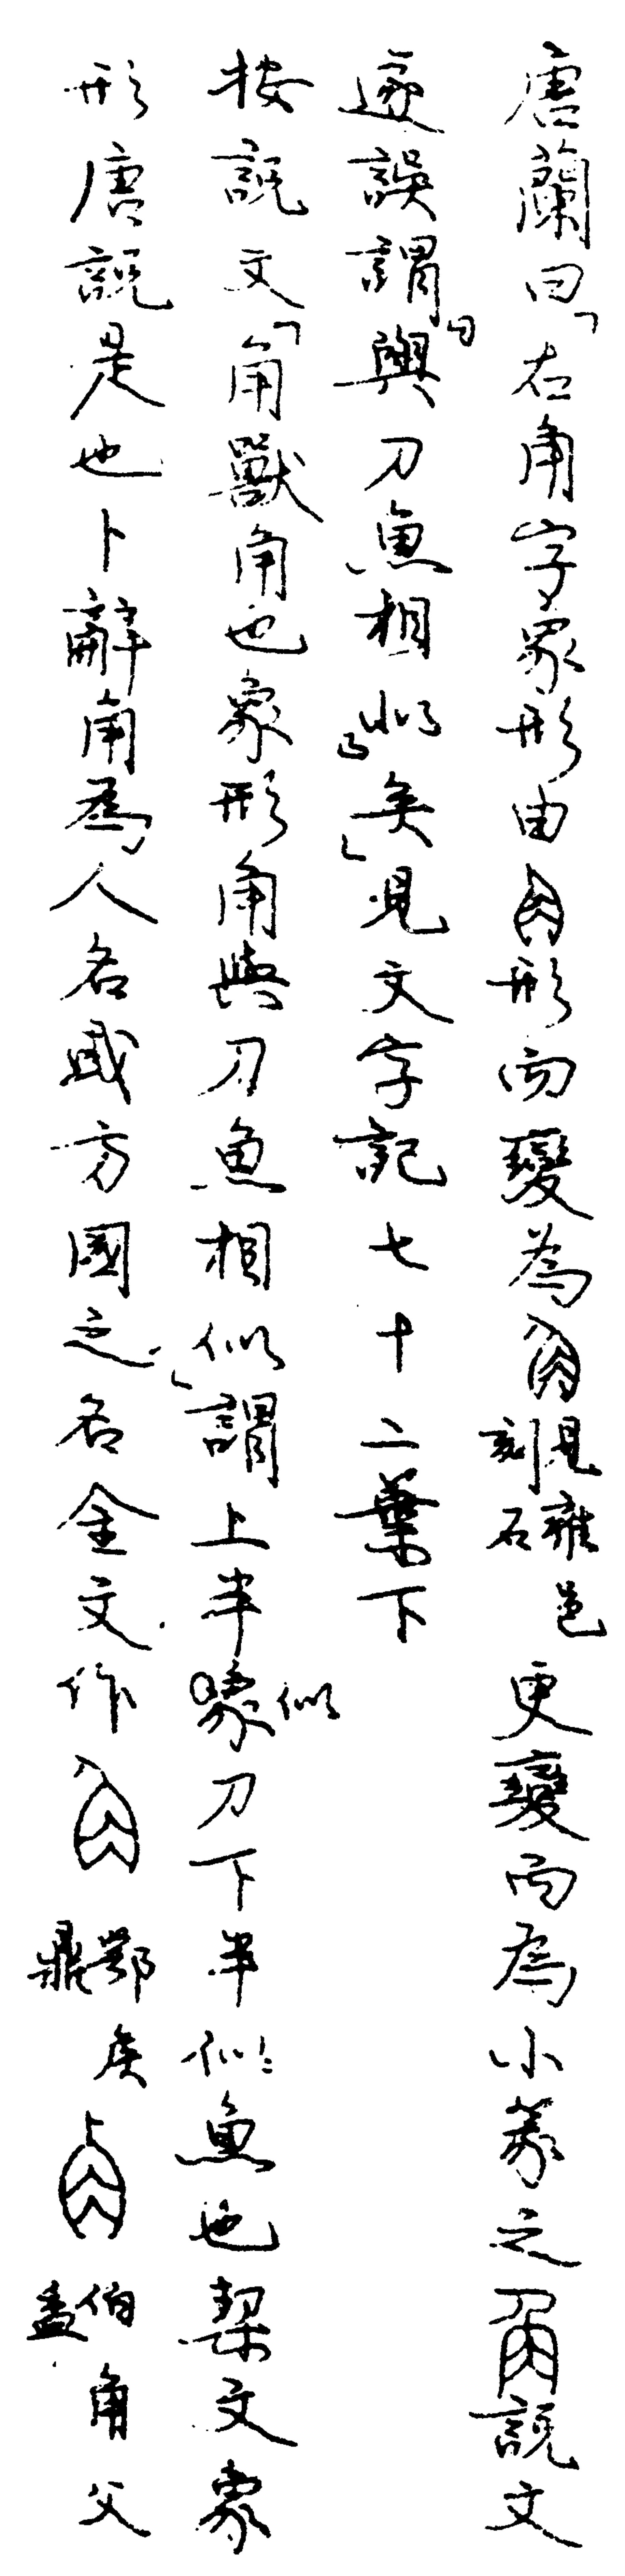 唐蘭曰「右角字象形由形而變為見雍邑刻石更變而為小篆之說文
遂誤謂『與刀魚相似』矣」見文字記七十二葉下
按說文「角獸角也象形角與刀魚相似」謂上半似刀下半似魚也栔文象
形唐說是也卜辭角為人名或方國之名金文作鄂侯鼎伯角父盉